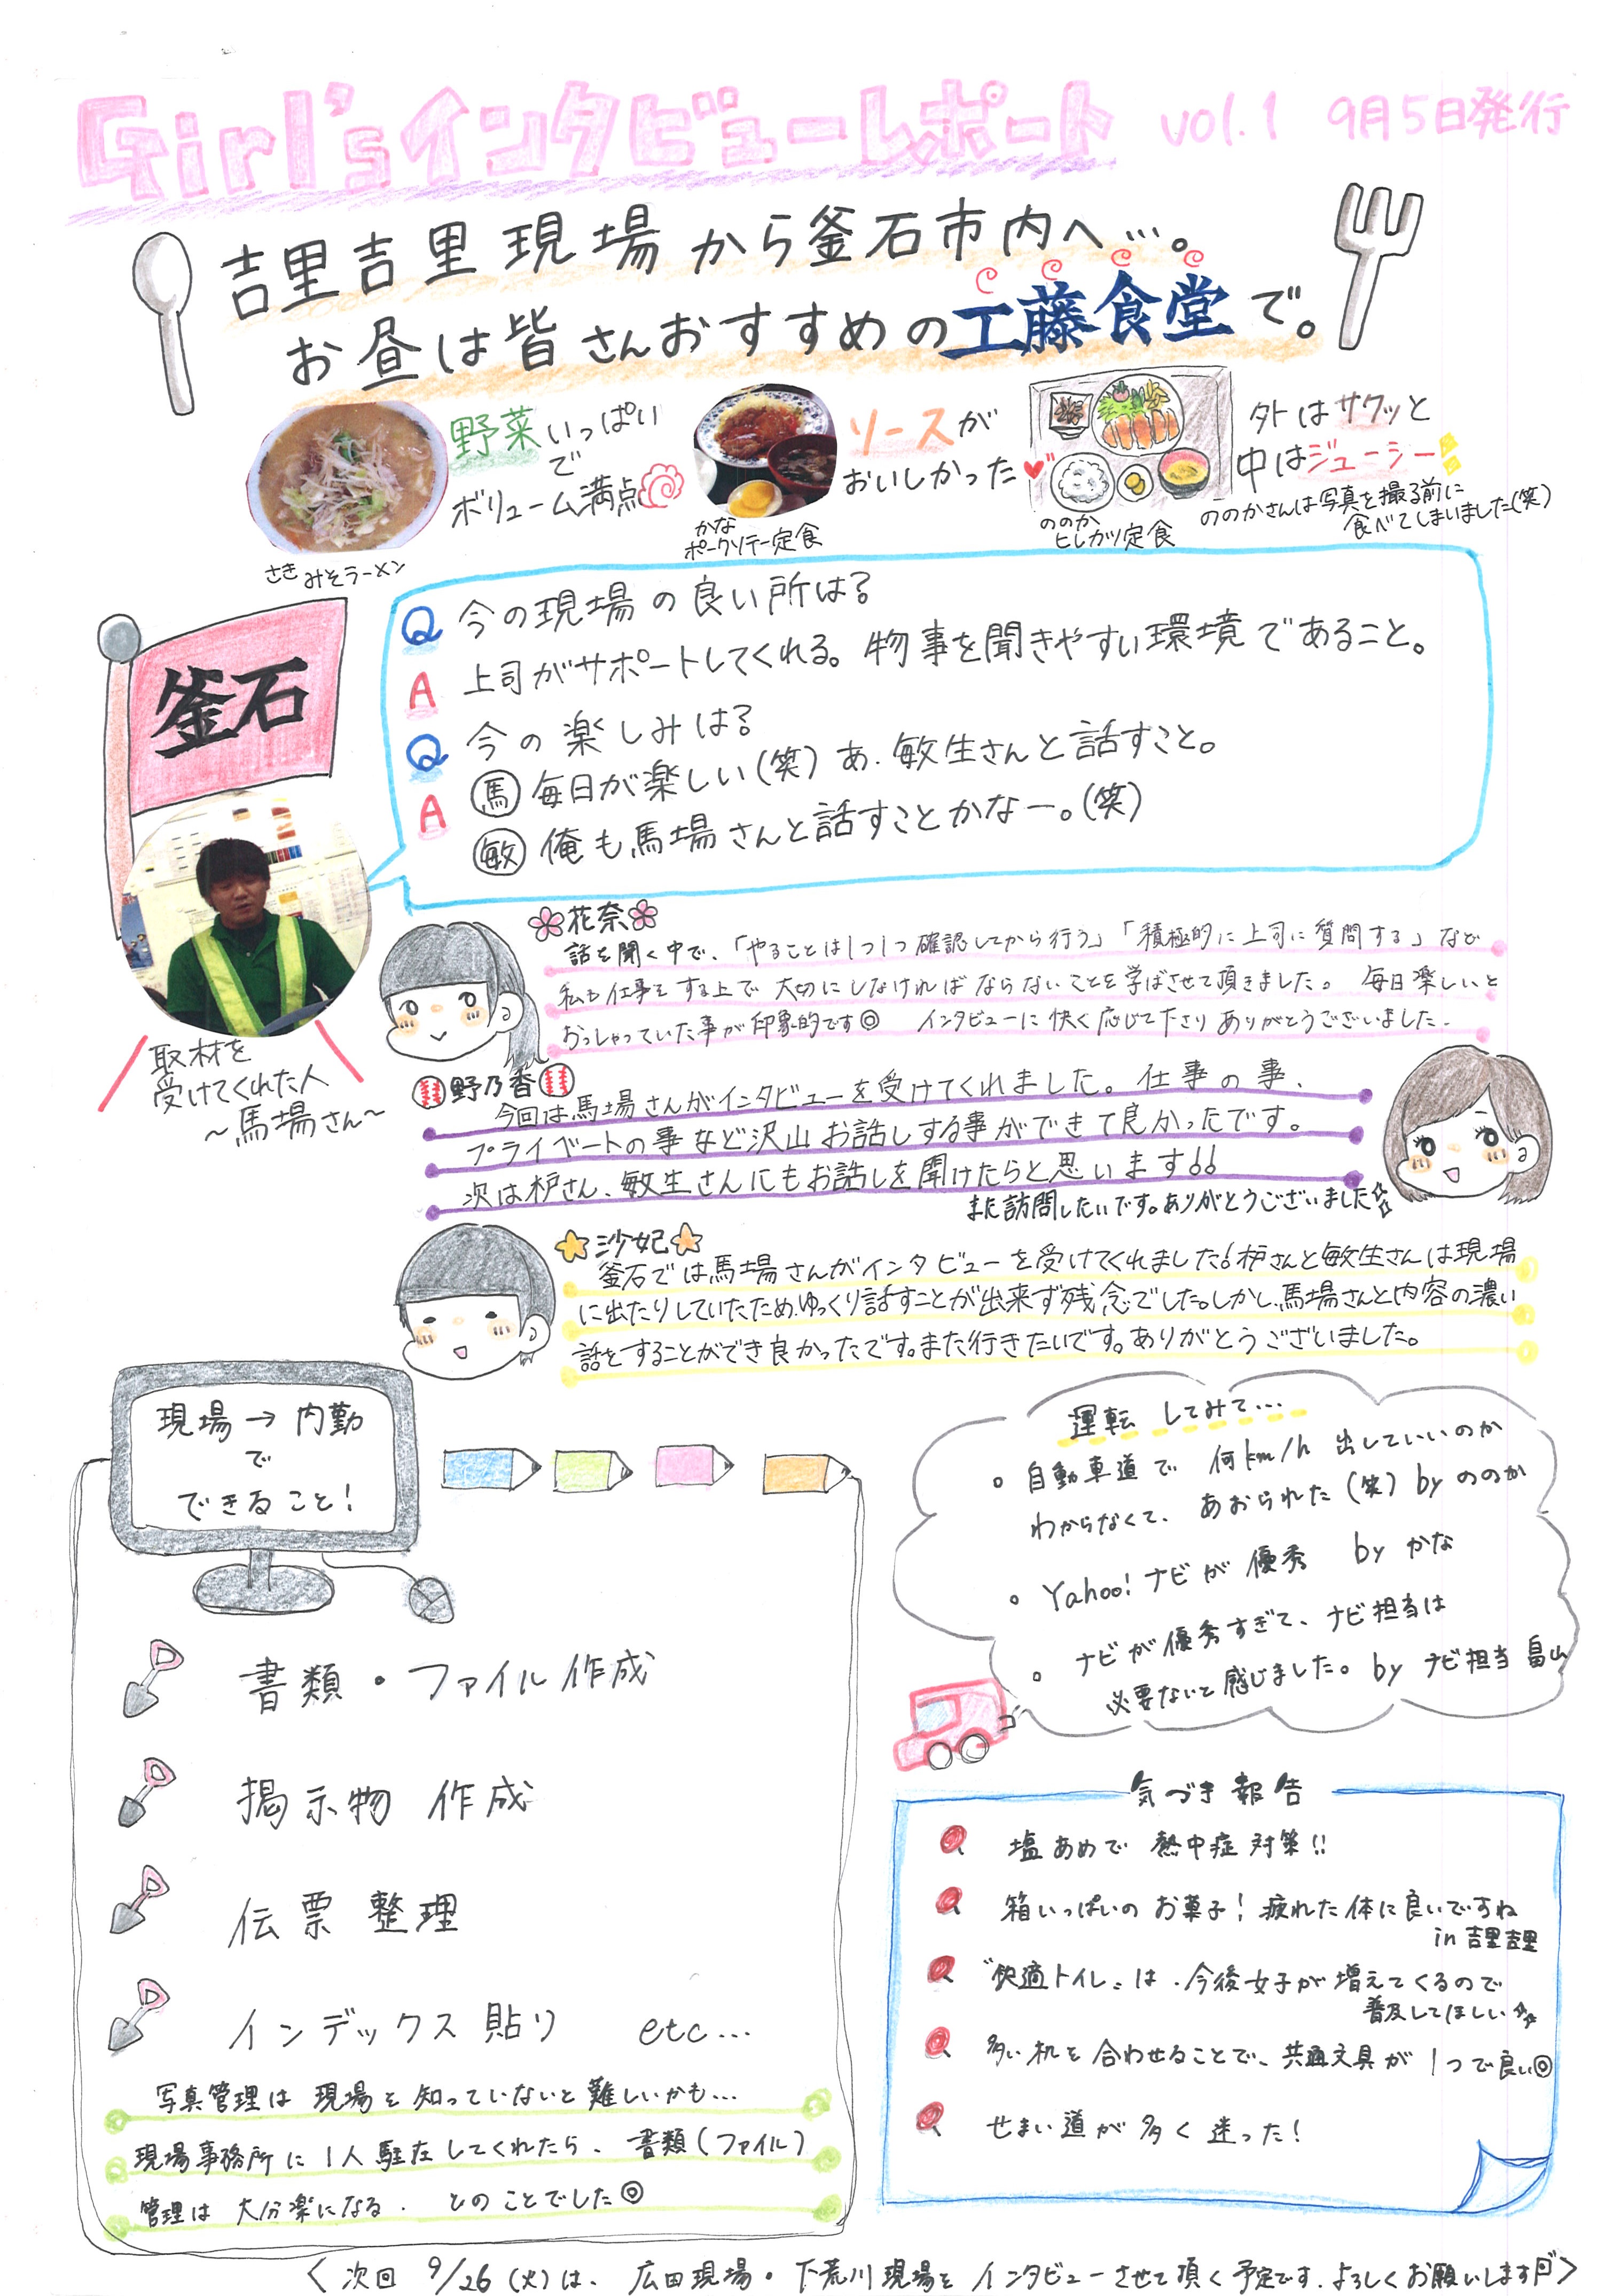 Girl'sインタビューレポート vol.1 9月5日発行
吉里吉里現場から釜石市内へ…。
お昼は皆さんおすすめの工藤食堂で。
野菜いっぱい
で
ボリューム満点
さき みそラーメン
ソースが
おいしかった♥
かな
ポークソテー定食
外はサクッと
中はジューシー
ののかさんは写真を撮る前に
食べてしまいました(笑)
ののか
ヒレカツ定食
釜石
Q 今の現場の良い所は?
A 上司がサポートしてくれる。物事を聞きやすい環境であること。
Q 今の楽しみは?
A 馬 毎日が楽しい(笑)あ、敏生さんと話すこと。
敏 俺も馬場さんと話すことかなー。(笑)
取材を
受けてくれた人
~馬場さん~
花奈
話を聞く中で、「やることは1つ1つ確認してから行う」「積極的に上司に質問する」など
私も仕事をする上で大切にしなければならないことを学ばさせて頂きました。毎日楽しいと
おっしゃっていた事が印象的です◎ インタビューに快く応じて下さりありがとうございました.
野乃香
今回は馬場さんがインタビューを受けてくれました。仕事の事、
プライベートの事など沢山お話しする事ができて良かったです。
次は枦さん、敏生さんにもお話しを聞けたらと思います!!
また訪問したいです。ありがとうございました☆
沙妃
釜石では馬場さんがインタビューを受けてくれました!枦さんと敏生さんは現場
に出たりしていたため、ゆっくり話すことが出来ず残念でした。しかし、馬場さんと内容の濃い
話をすることができ良かったです。また行きたいです。ありがとうございました。
現場→内勤
で
できること!
書類・ファイル作成
掲示物 作成
伝票 整理
インデックス貼り etc…
写真管理は現場を知っていないと難しいかも…
現場事務所に1人駐在してくれたら、書類(ファイル)
管理は大分楽になる. とのことでした◎
運転してみて…
。自動車道で何km/h 出していいのか
わからなくて、あおられた(笑)by ののか
。Yahoo!ナビが優秀 by かな
。ナビが優秀すぎて、ナビ担当は
必要ないと感じました。by ナビ担当 畠山
気づき報告
塩あめで 熱中症対策!!
箱いっぱいのお菓子!疲れた体に良いですね
in 吉里吉里
"快適トイレ"は、今後女子が増えてくるので
普及してほしい
多い机を合わせることで、共通文具が1つで良い◎
せまい道が多く迷った!
<次回 9/26(火)は、広田現場・下荒川現場をインタビューさせて頂く予定です.よろしくお願いします>